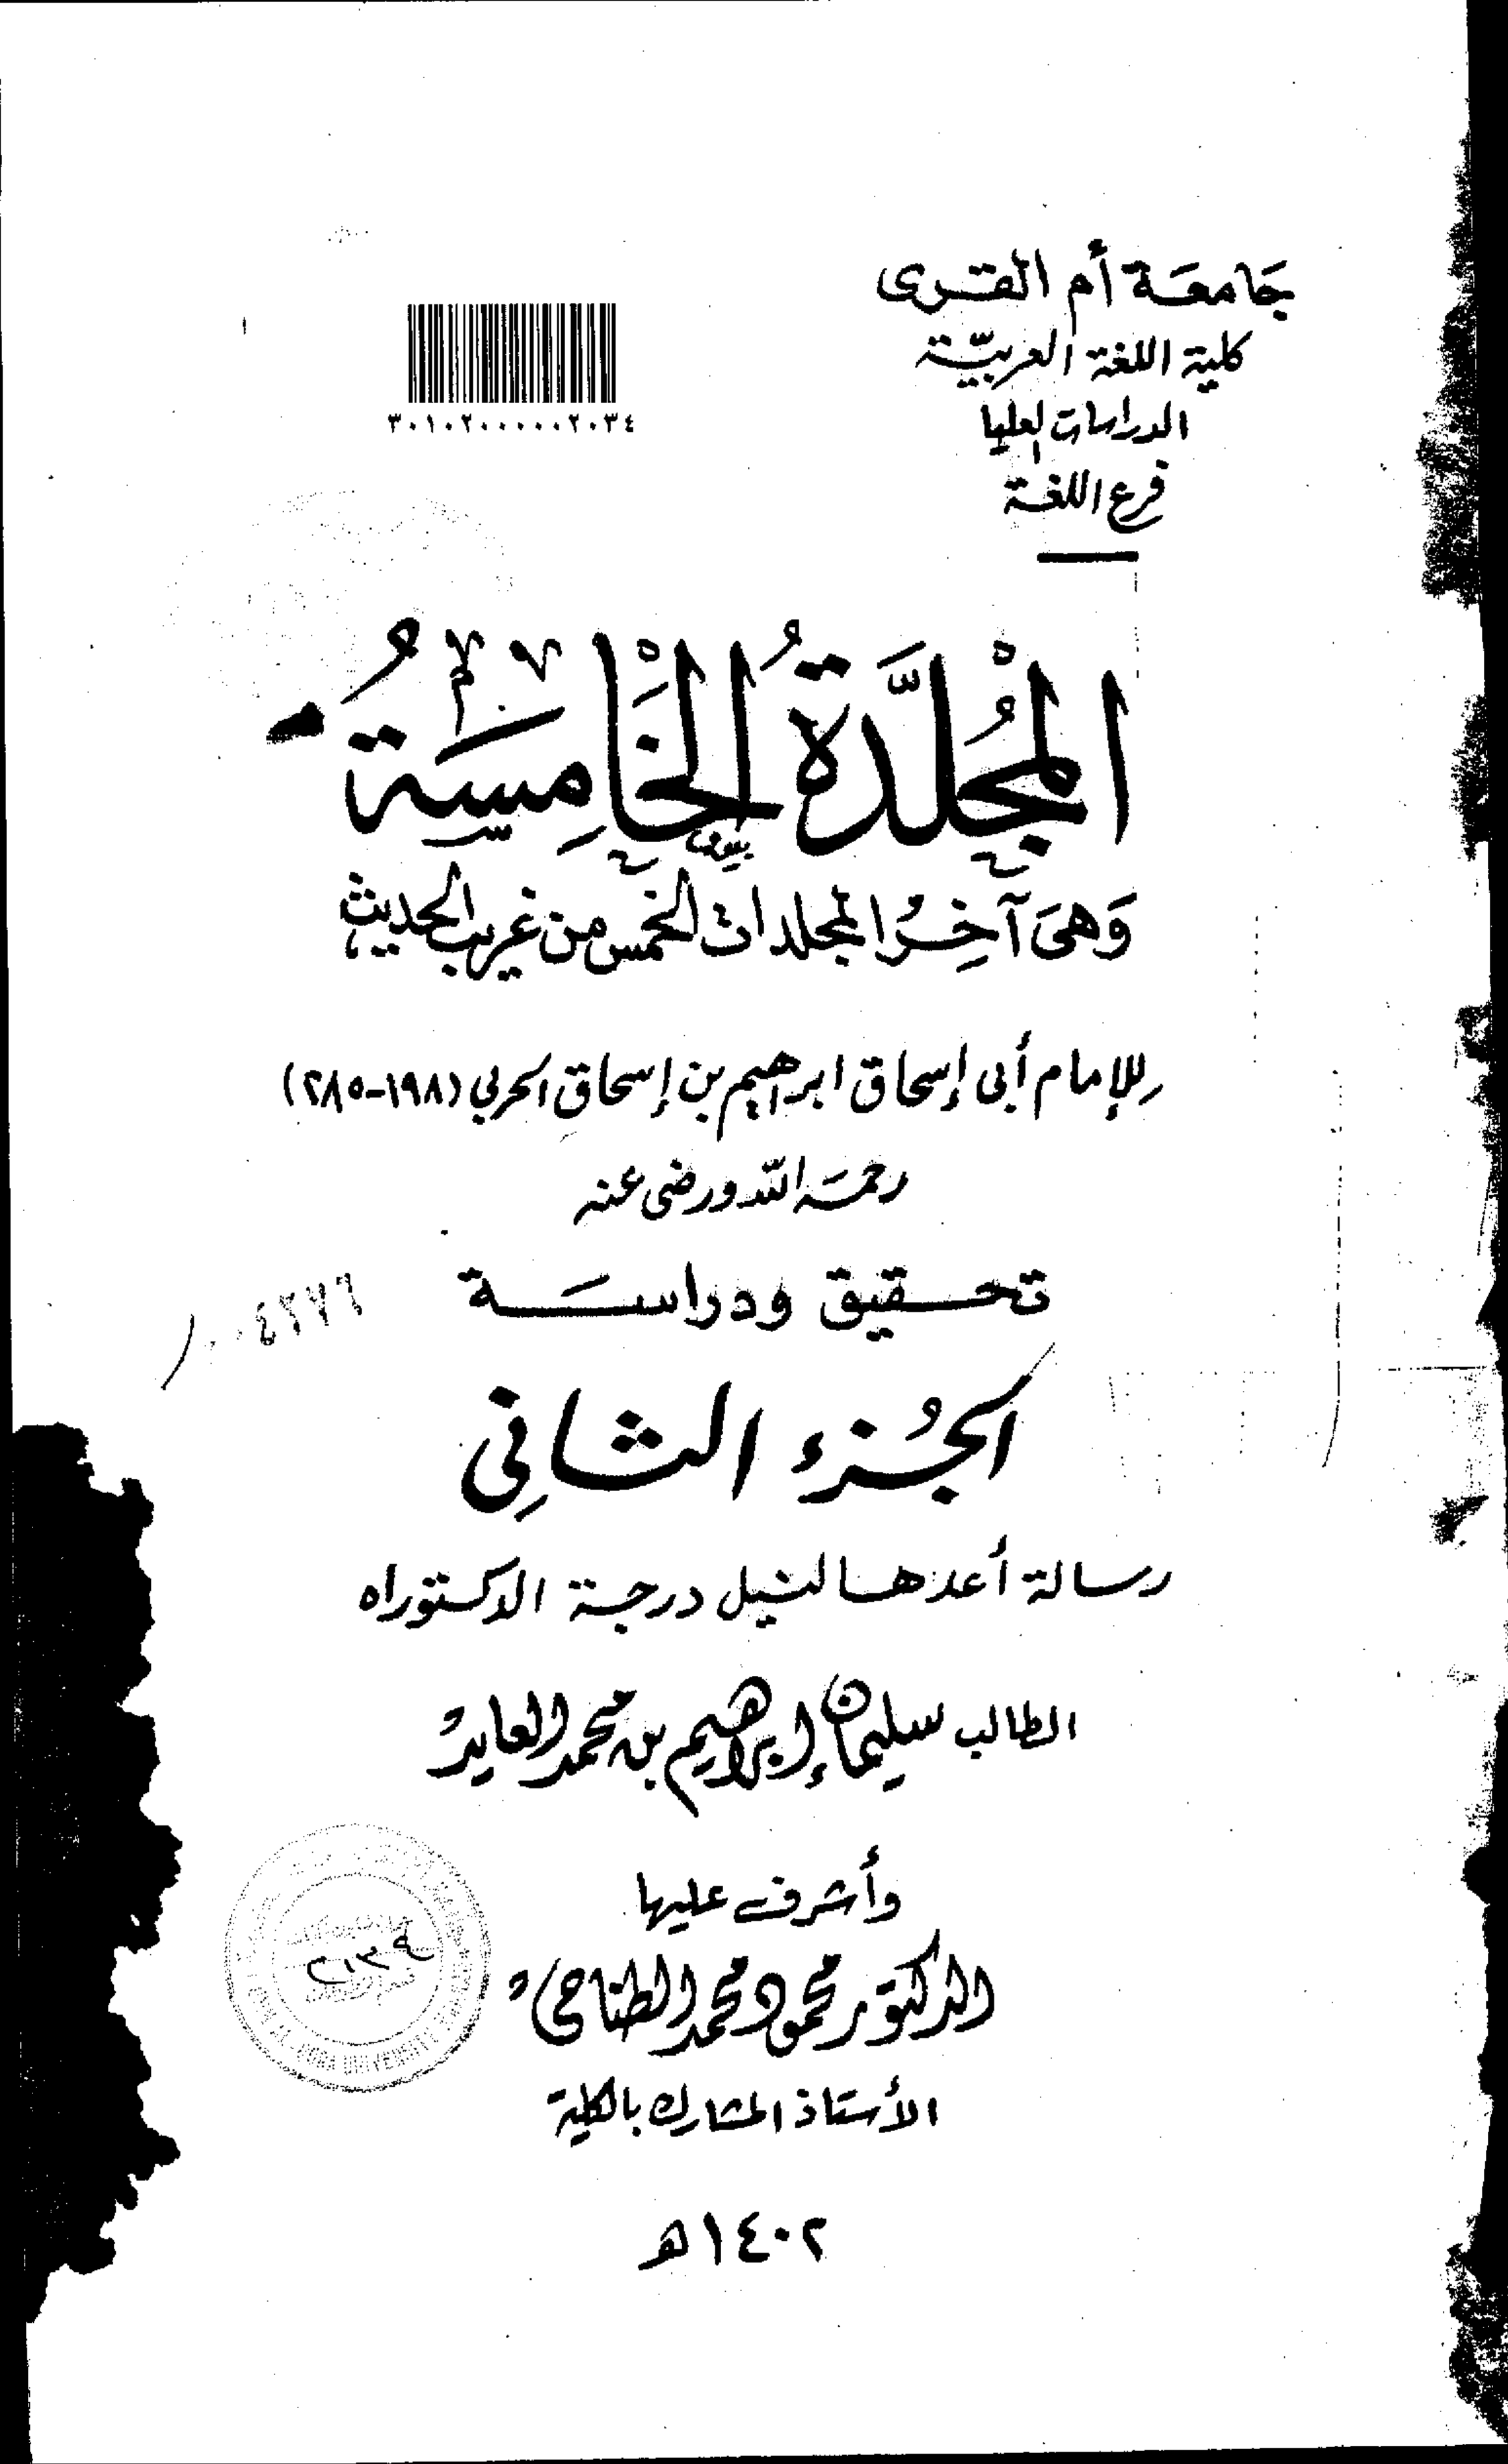 جَامعَة أم القرى
كلية اللغة العربيّة
الدراسات العليا
فرع اللغة
٣٠١٠٢٠٠٠٠٠٢٠٣٤
المُجْلَّدَةُ الخَامِسَةُ
وَهىَ آخِرُ المجلدات الخمس من غريب الحديث
لِلإمام أبى إسحاق ابراهيم بن إسحاق الحربي (١٩٨-٢٨٥)
رحمَه الله ورضى عنه
تحقيق ودراسَة
٤٢٧٦
الجُزء الثانِى
رسالة أعدها لنيل درجة الدكتوراه
الطالب سليمان إبراهيم بن محمد العايد
وأشرف عليها
الدكتور محمود محمد الطناحى
الأستاذ المشارك بالكلية
١٤٠٢ هـ